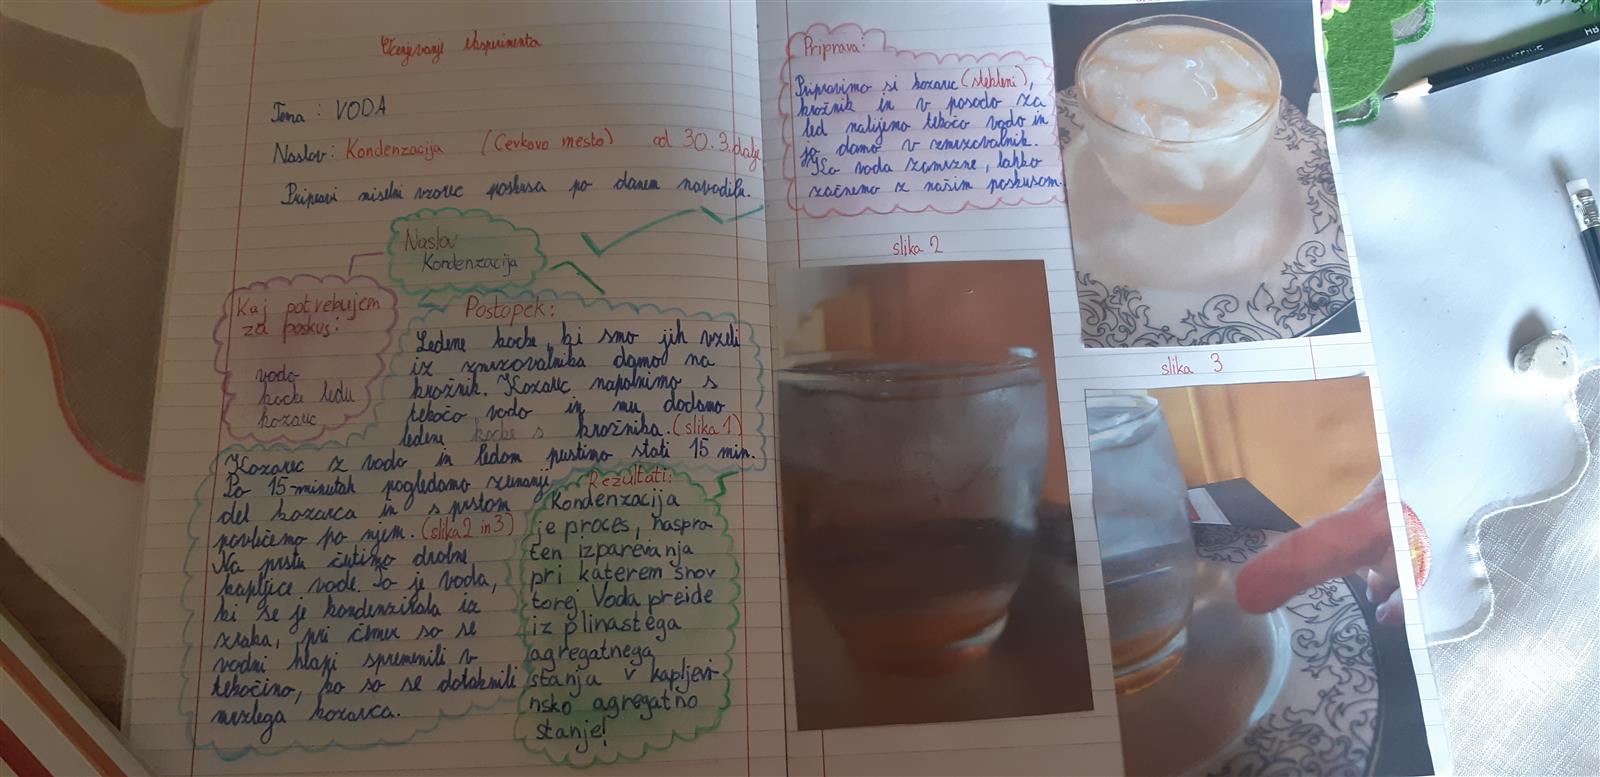 Ocenjevanje eksperimenta
Tema: VODA
Naslov: Kondenzacija (Cevkovo mesto) od 30.3. dalje
Pripravi miselni vzorec poskusa po danem navodilu.
Naslov
Kondenzacija
Kaj potrebujem
za poskus:
voda
kocke ledu
kozarec
Postopek:
Ledene kocke, ki smo jih vzeli
iz zmrzovalnika damo na
krožnik. Kozarec napolnimo s
tekočo vodo in mu dodamo
ledene kocke s krožnika. (slika 1)
Kozarec z vodo in ledom pustimo stati 15 min.
Po 15 minutah pogledamo zunanji
del kozarca in s prstom
povlečemo po njem. (slika 2 in 3)
Na prstu čutimo drobne
kapljice vode. To je voda,
ki se je kondenzirala iz
zraka, pri čemer so se
vodni hlapi spremenili v
tekočino, ko so se dotaknili
mrzlega kozarca.
Rezultati:
Kondenzacija
je proces, naspro-
ten izparevanja
pri katerem snov
torej voda preide
iz plinastega
agregatnega
stanja v kapljevi-
nsko agregatno
stanje!
Priprava:
Pripravimo si kozarec (stekleni),
krožnik in v posodo za
led nalijemo tekočo vodo in
jo damo v zmrzovalnik.
Ko voda zamrzne, lahko
začnemo z našim poskusom.
slika 2
slika 3
HB